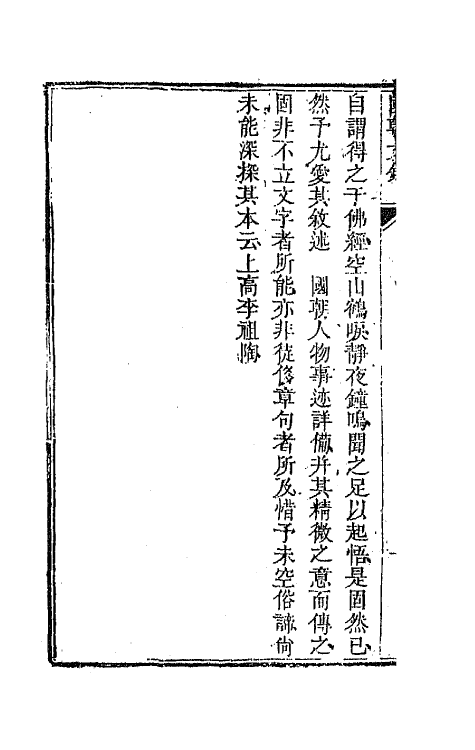 國朝文錄
自謂得之于佛經空山鶴唳靜夜鐘鳴聞之足以起悟是固然已
然予尤愛其敘述　國朝人物事迹詳備并其精微之意而傳之
固非不立文字者所能亦非徒俢章句者所及惜予未空俗諦尚
未能深探其本云上高李祖陶